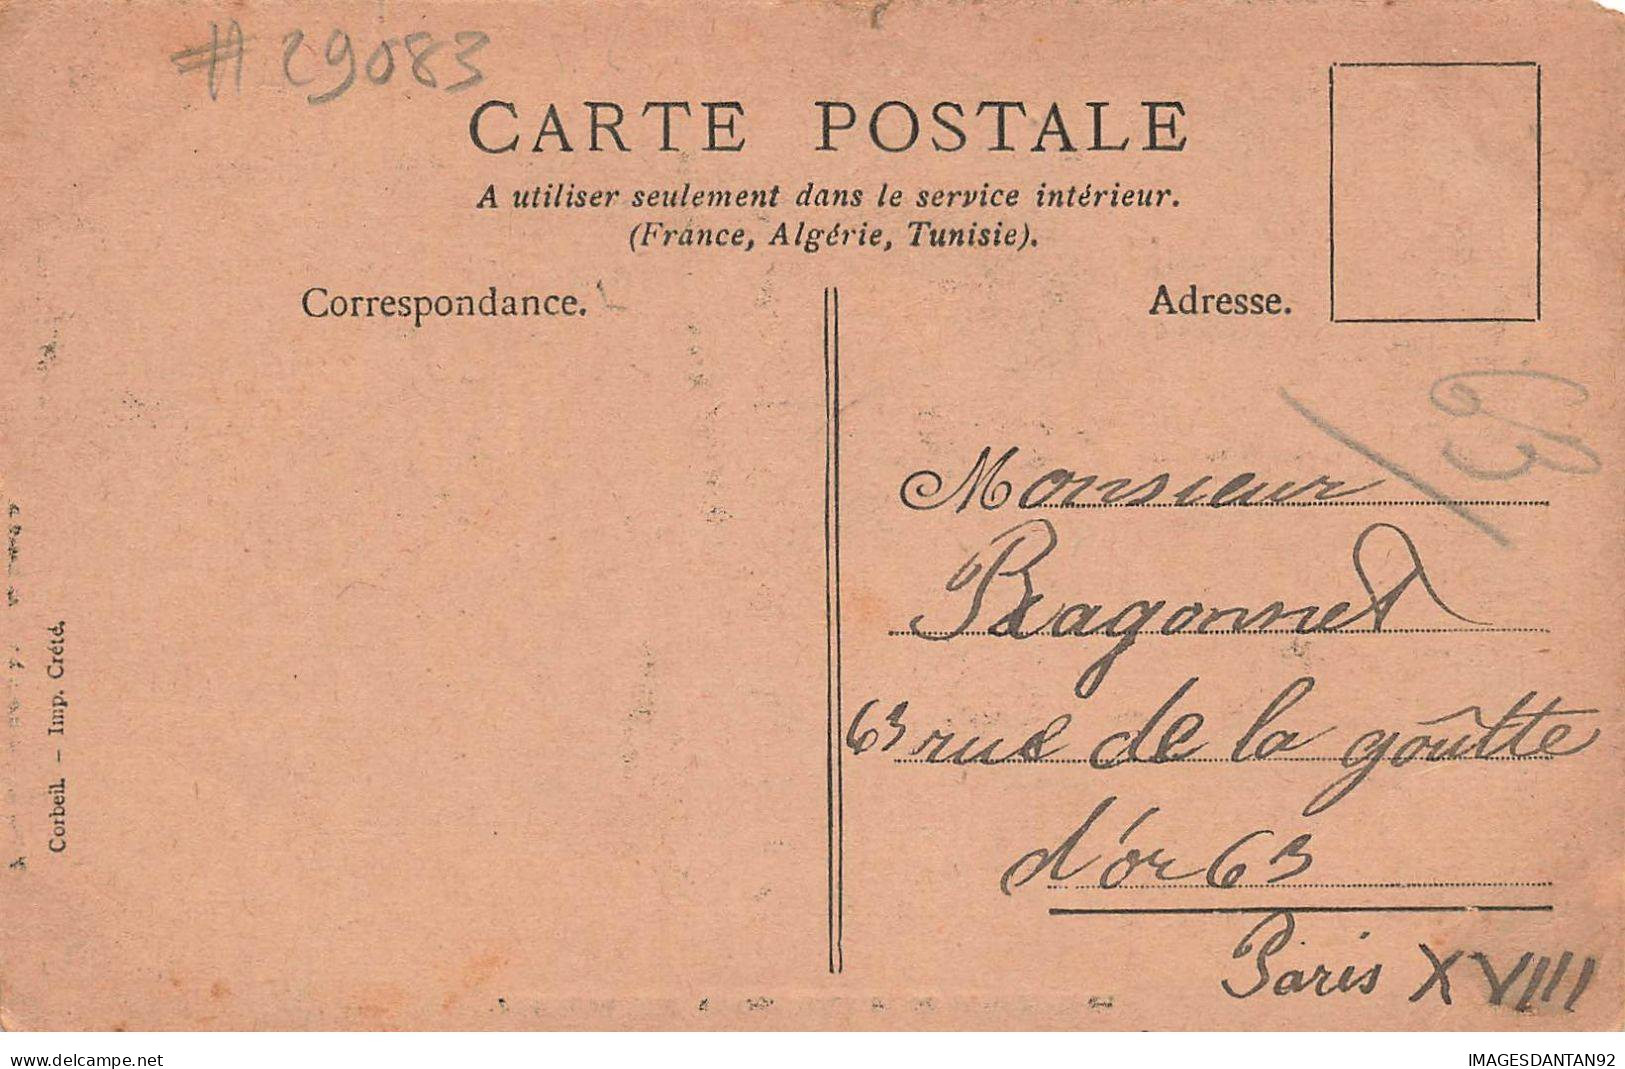 # 29083
CARTE POSTALE
A utiliser seulement dans le service intérieur.
(France, Algérie, Tunisie).
Correspondance.
Adresse.
63
Monsieur
Ragonnet
63 rue de la goûtte
d'or 63
Paris XVIII
Corbeil. – Imp. Crété.
www.delcampe.net
IMAGESDANTAN92